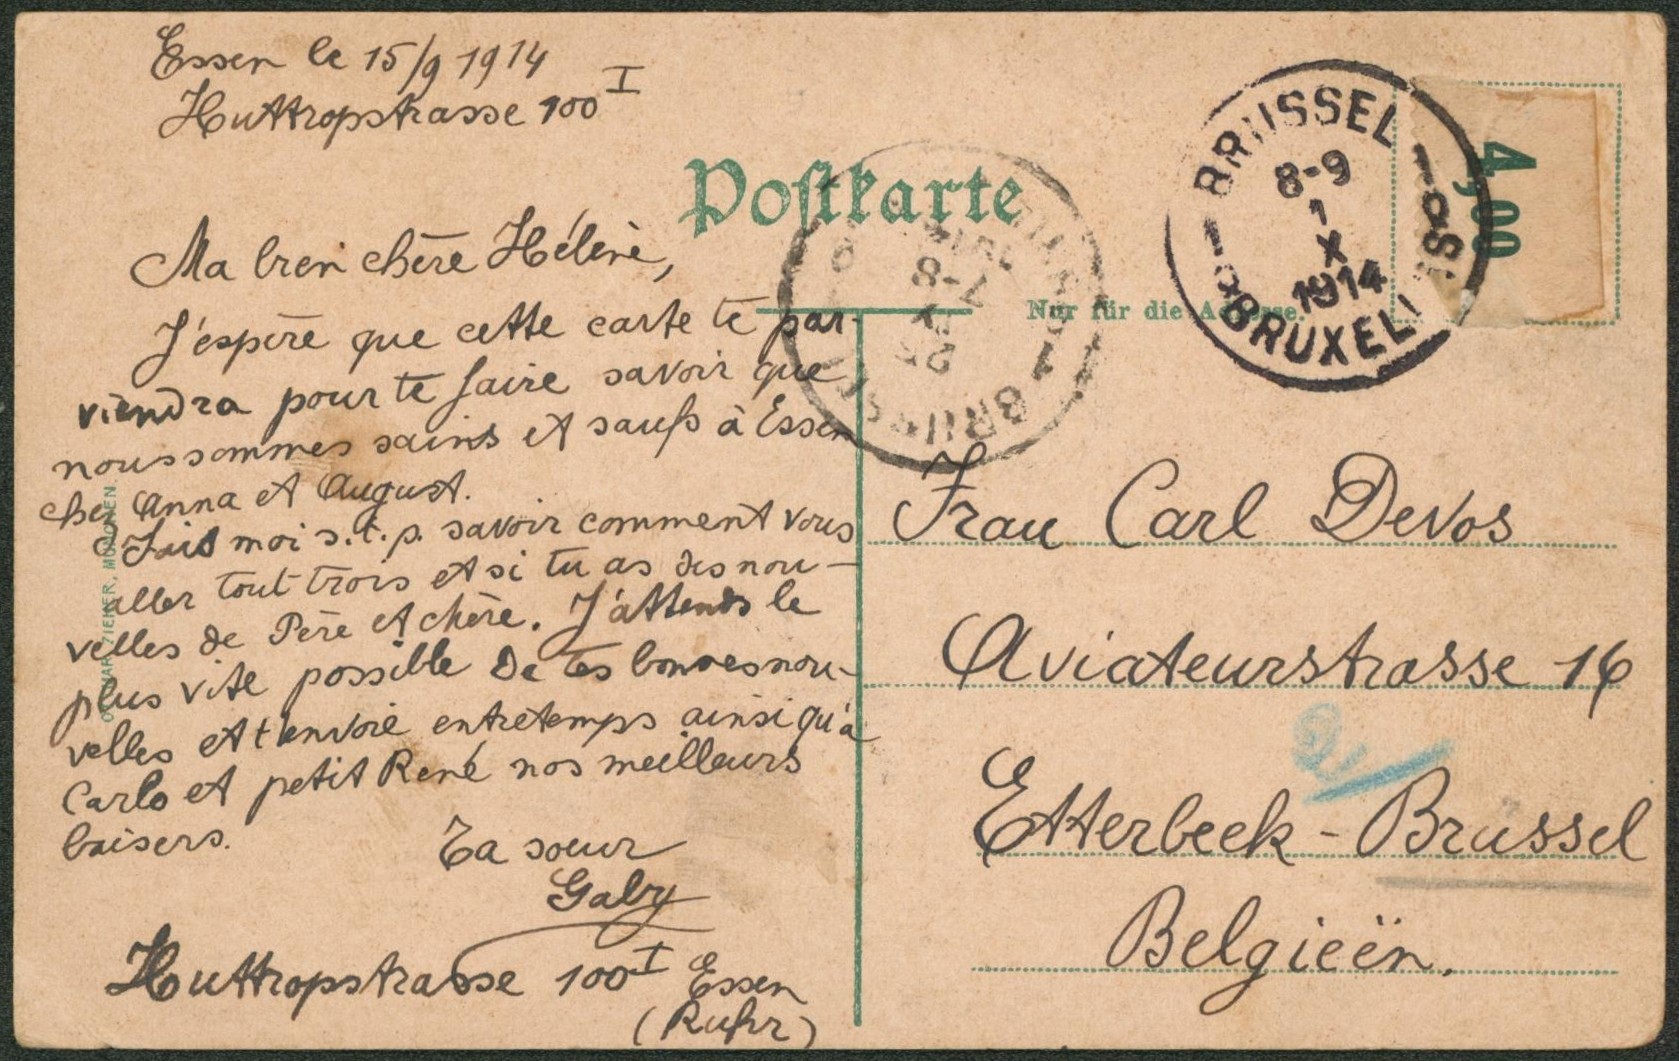 Essen le 15/9 1914
Huttropstrasse 100 I
Postkarte
Nur für die Adresse.
BRÜSSEL
8-9
1
X
1914
BRUXEL
4,00
1914
7-8
IX
25
1 BRÜSSEL
Ma bien chère Hélène,
J'espère que cette carte te par-
viendra pour te faire savoir que
nous sommes sains et saufs à Essen
chez Anna et August.
Fais moi s.t.p. savoir comment vous
aller tout trois et si tu as des nou-
velles de Père et chère. J'attends le
plus vite possible de tes bonnes nou-
velles et t'envoie entretemps ainsi qu'à
Carlo et petit René nos meilleurs
baisers.
Ta soeur
Gaby
Huttropstrasse 100 I Essen
(Ruhr)
OTTMAR ZIEHER, MÜNCHEN.
Frau Carl DeVos
Aviateurstrasse 16
Etterbeek - Brüssel
Belgieën.